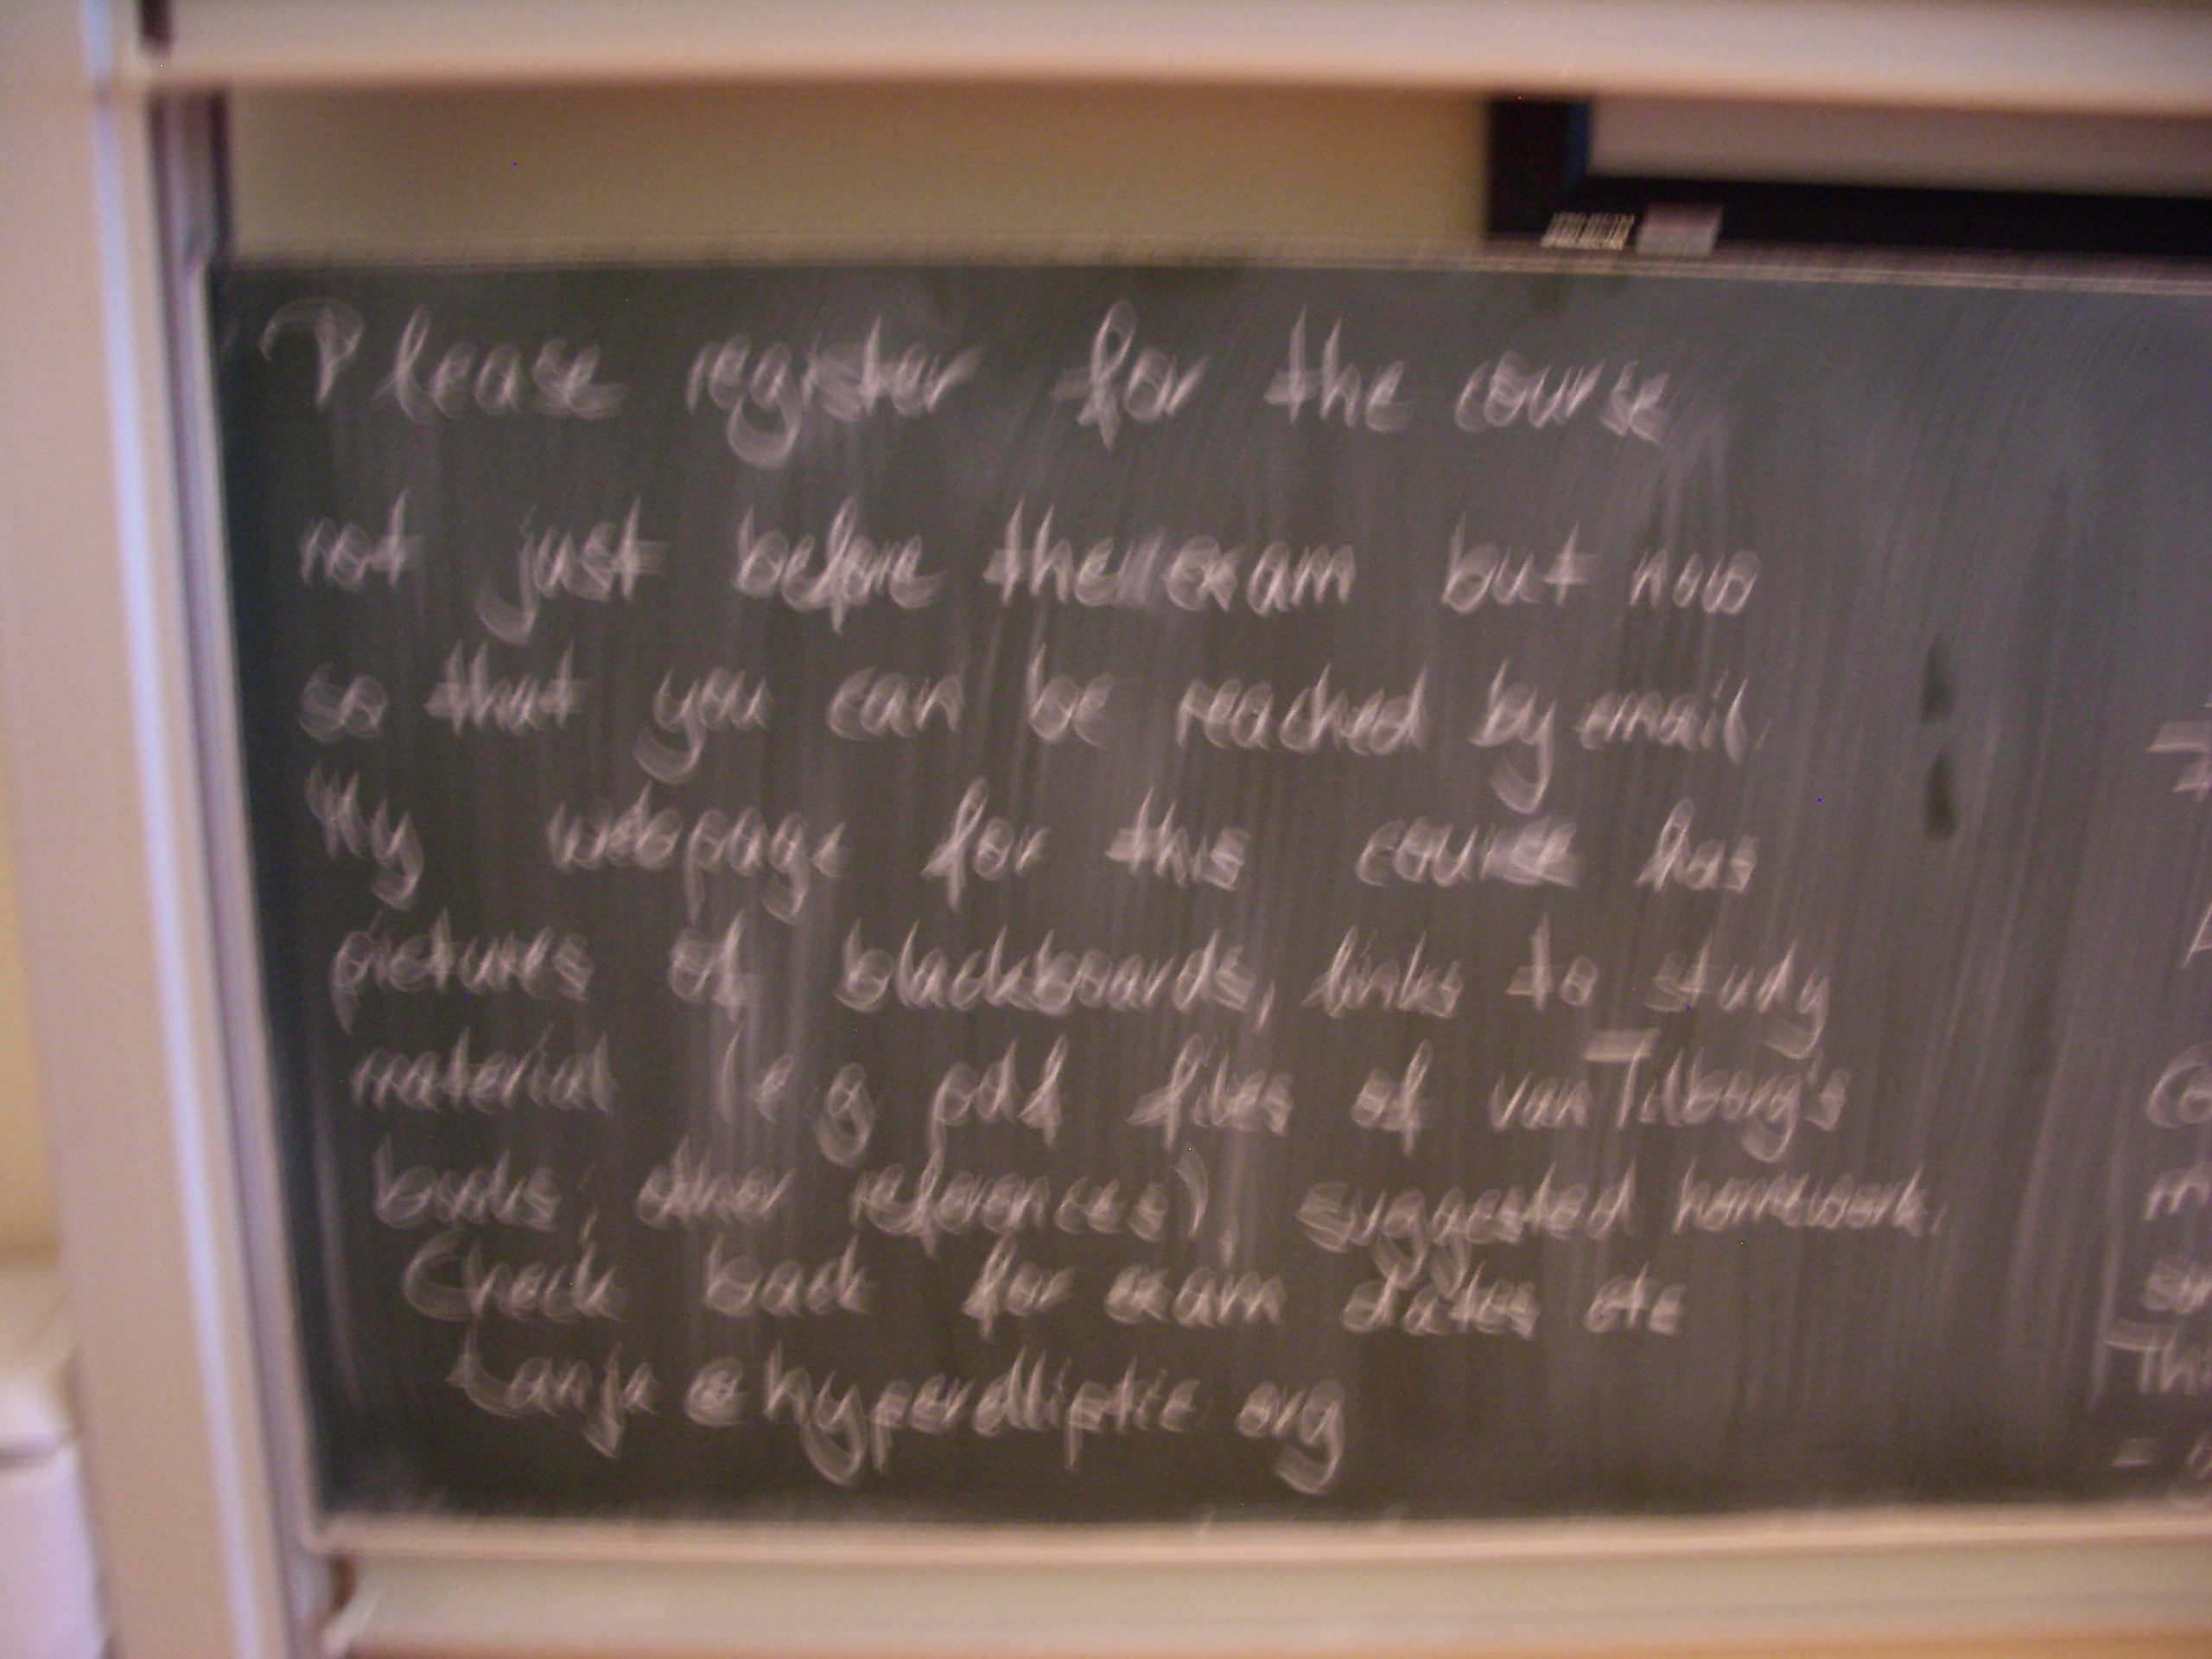 Please register for the course
not just before the exam but now
so that you can be reached by email.
My webpage for this course has
pictures of blackboards, links to study
material (e.g. pdf files of van Tilborg's
books, other references), suggested homework.
Check back for exam dates etc
tanja@hyperelliptic.org